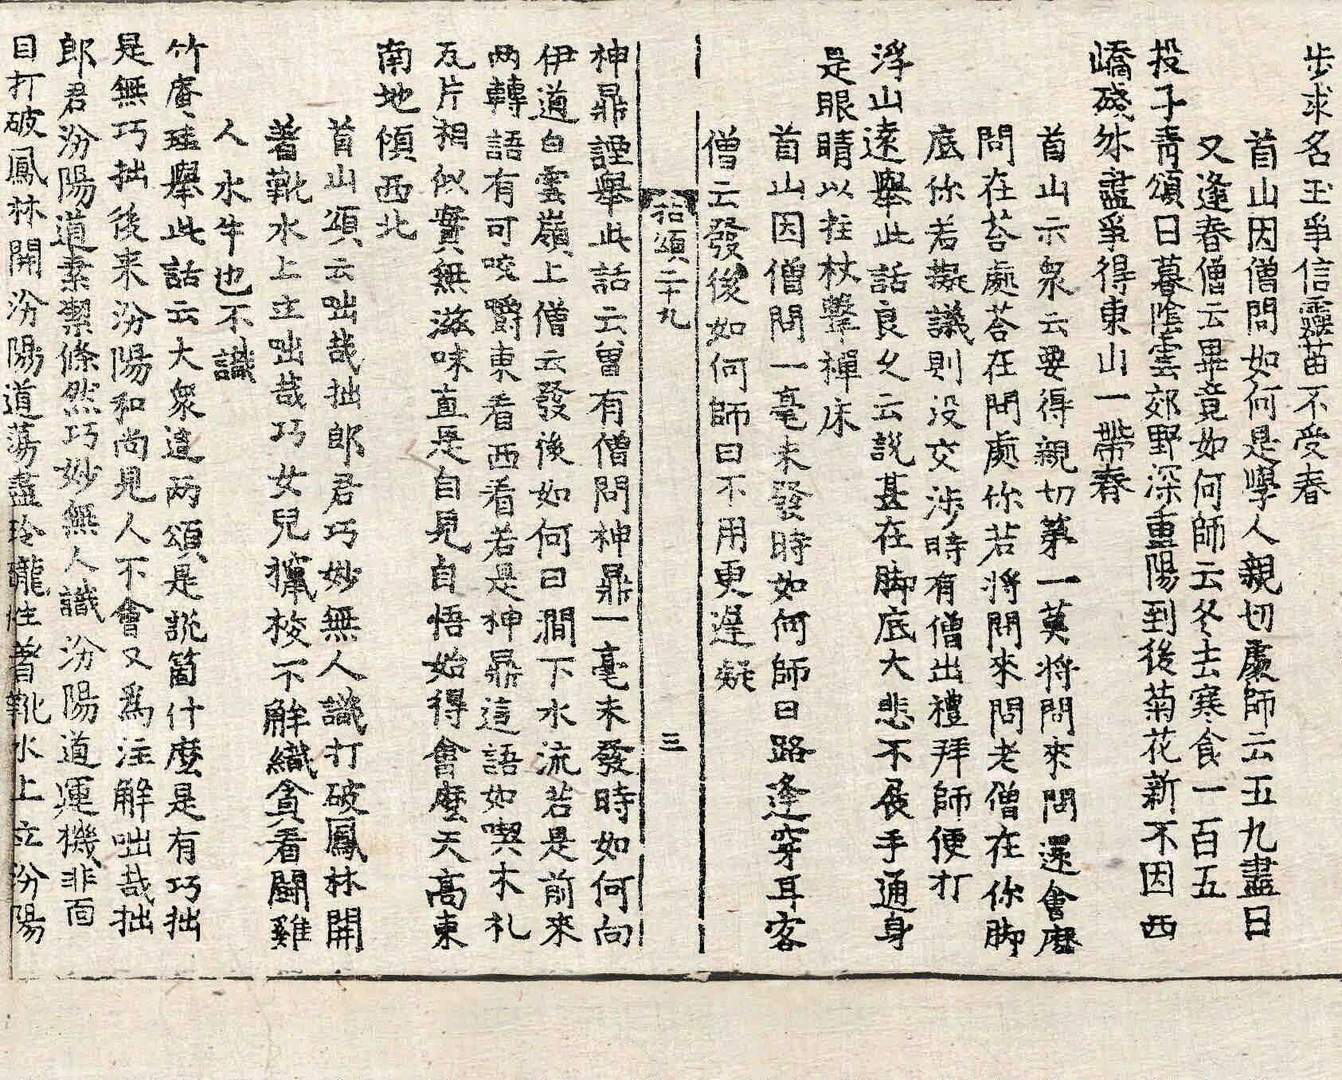 步求名玉爭信靈苗不受春
首山因僧問如何是學人親切處師云五九盡日
又逢春僧云畢竟如何師云冬去寒食一百五
投子靑頌日暮陰雲郊野深重陽到後菊花新不因西
嶠殘妳盡爭得東山一帶春
首山示衆云要得親切苐一莫將問來問還會麽
問在荅處荅在問處你若將問來問老僧在你脚
底你若擬議則没交涉時有僧出禮拜師便打
浮山遠舉此話良久云說甚在脚底大悲不展手通身
是眼睛以拄杖擊禪床
首山因僧問一毫未發時如何師曰路逢穿耳客
僧云發後如何師曰不用更遲疑
拈頌二十九
三
神鼎諲舉此話云曾有僧問神鼎一毫未發時如何向
伊道白雲嶺上僧云發後如何曰澗下水流若是前來
两轉語有可咬嚼東看西看若是神鼎這語如喫木札
瓦片相似實無滋味直是自見自悟始得會麽天高東
南地傾西北
首山頌云咄哉拙郎君巧妙無人識打破鳳林開
著靴水上立咄哉巧女兒攛梭不解織貪看鬪雞
人水牛也不識
竹庵珪舉此話云大衆這两頌是說箇什麽是有巧拙
是無巧拙後来汾陽和尚見人不會又爲注解咄哉拙
郎君汾陽道素潔條然巧妙無人識汾陽道運機非面
目打破鳳林開汾陽道蕩盡玲瓏性著靴水上立汾陽